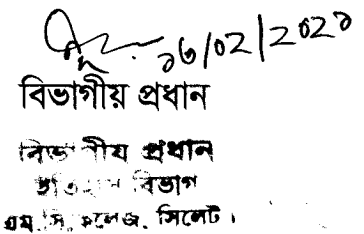 ১৬/০২/২০২১
বিভাগীয় প্রধান
বিভাগীয় প্রধান
ইতিহাস বিভাগ
এম. সি. কলেজ, সিলেট।